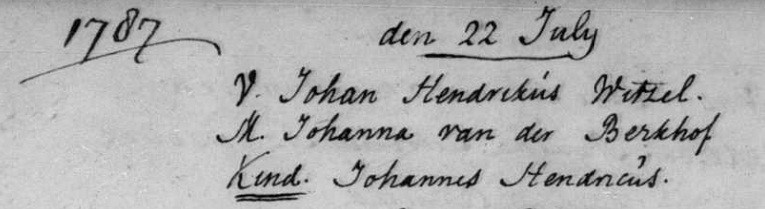 1787 den 22 July
V. Johan Hendrikus Witzel.
M. Johanna van der Berkhof
Kind. Johannes Hendricus.